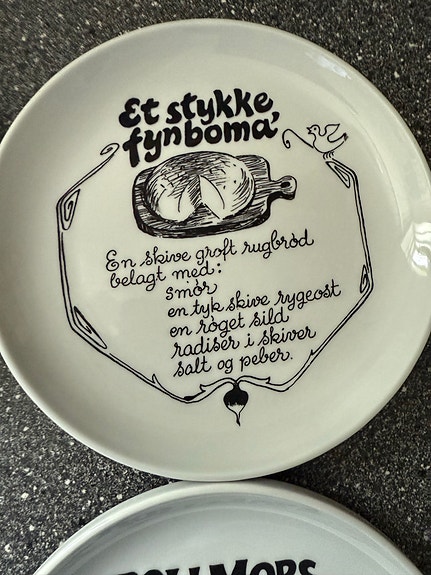 Et stykke
fynboma'
En skive groft rugbrød
belagt med:
smør
en tyk skive rygeost
en røget sild
radiser i skiver
salt og peber.
ROLLMOPS